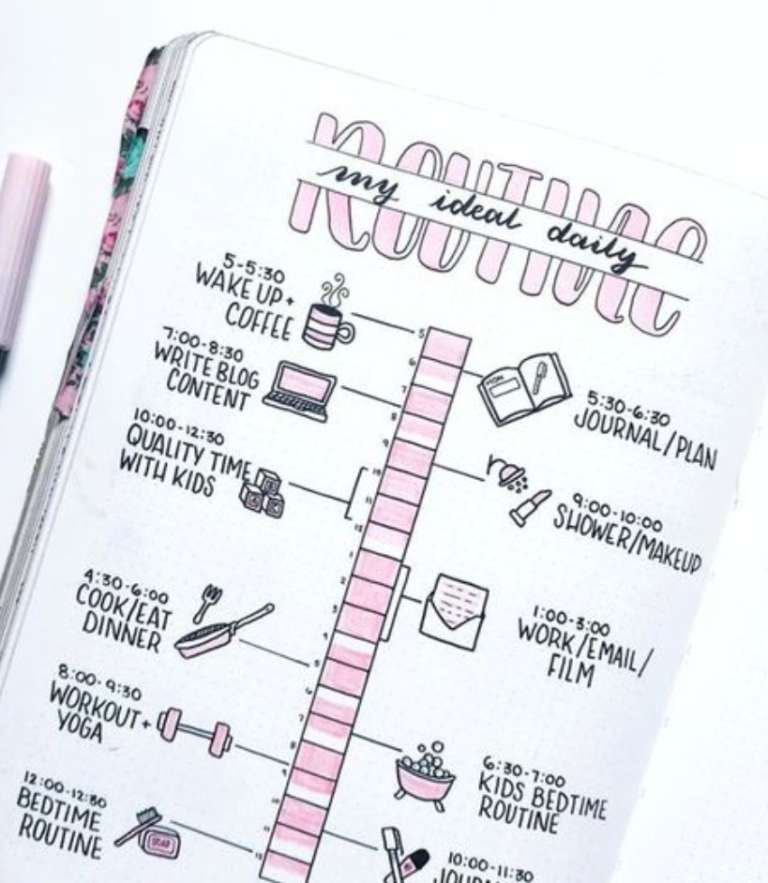 ROUTINE
my ideal daily
5-5:30
WAKE UP +
COFFEE
5
6
7
8
9
10
11
12
1
2
3
4
5
6
7
8
9
10
11
12
5:30-6:30
JOURNAL/PLAN
7:00-8:30
WRITE BLOG
CONTENT
9:00-10:00
SHOWER/MAKEUP
10:00-12:30
QUALITY TIME
WITH KIDS
1:00-3:00
WORK/EMAIL/
FILM
4:30-6:00
COOK/EAT
DINNER
6:30-7:00
KIDS BEDTIME
ROUTINE
8:00-9:30
WORKOUT +
YOGA
10:00-11:30
12:00-12:30
BEDTIME
ROUTINE